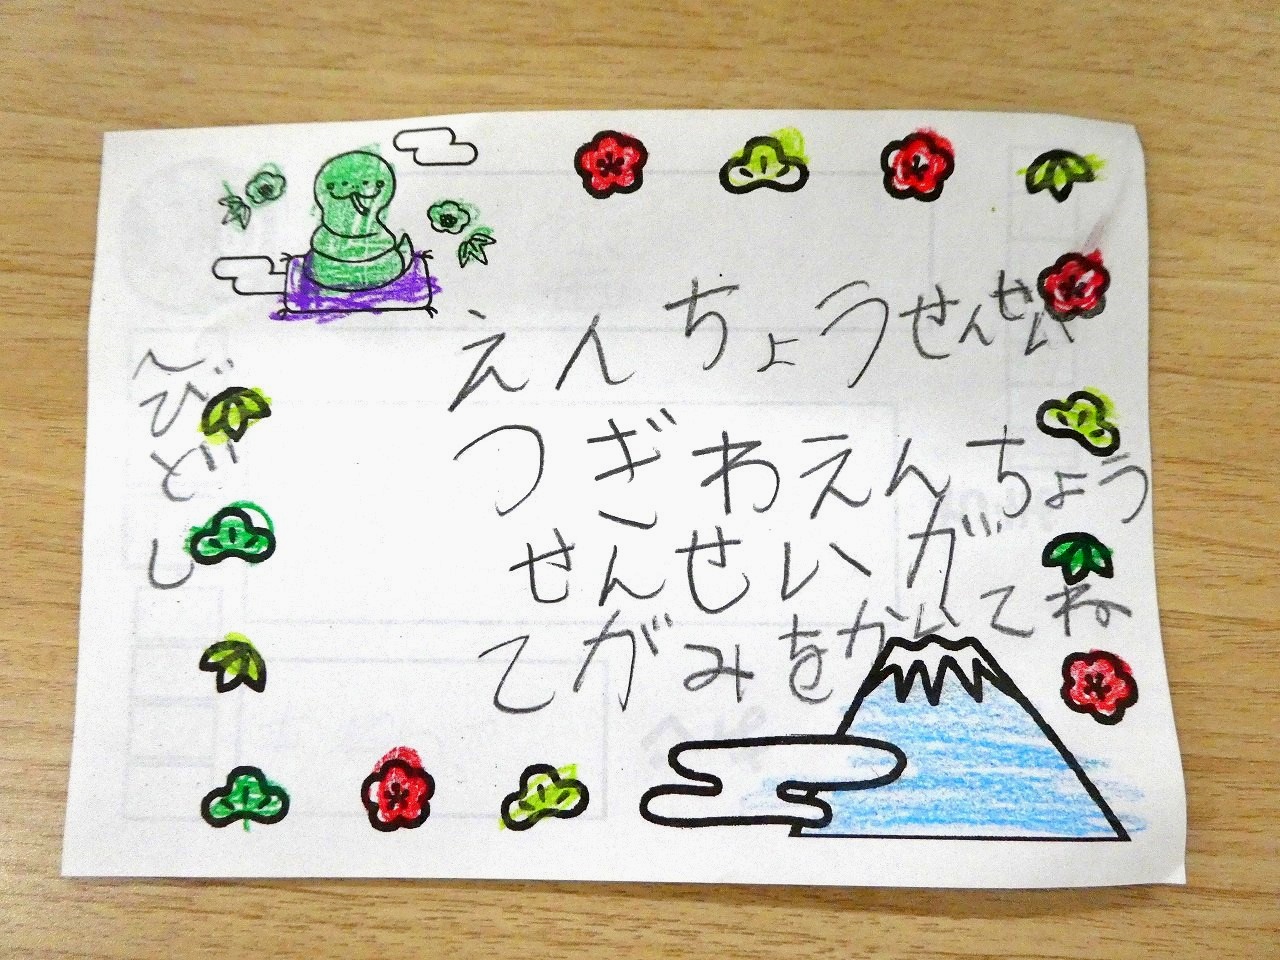 えんちょうせんせい
つぎわえんちょう
せんせいが
てがみをかいてね
へびどし